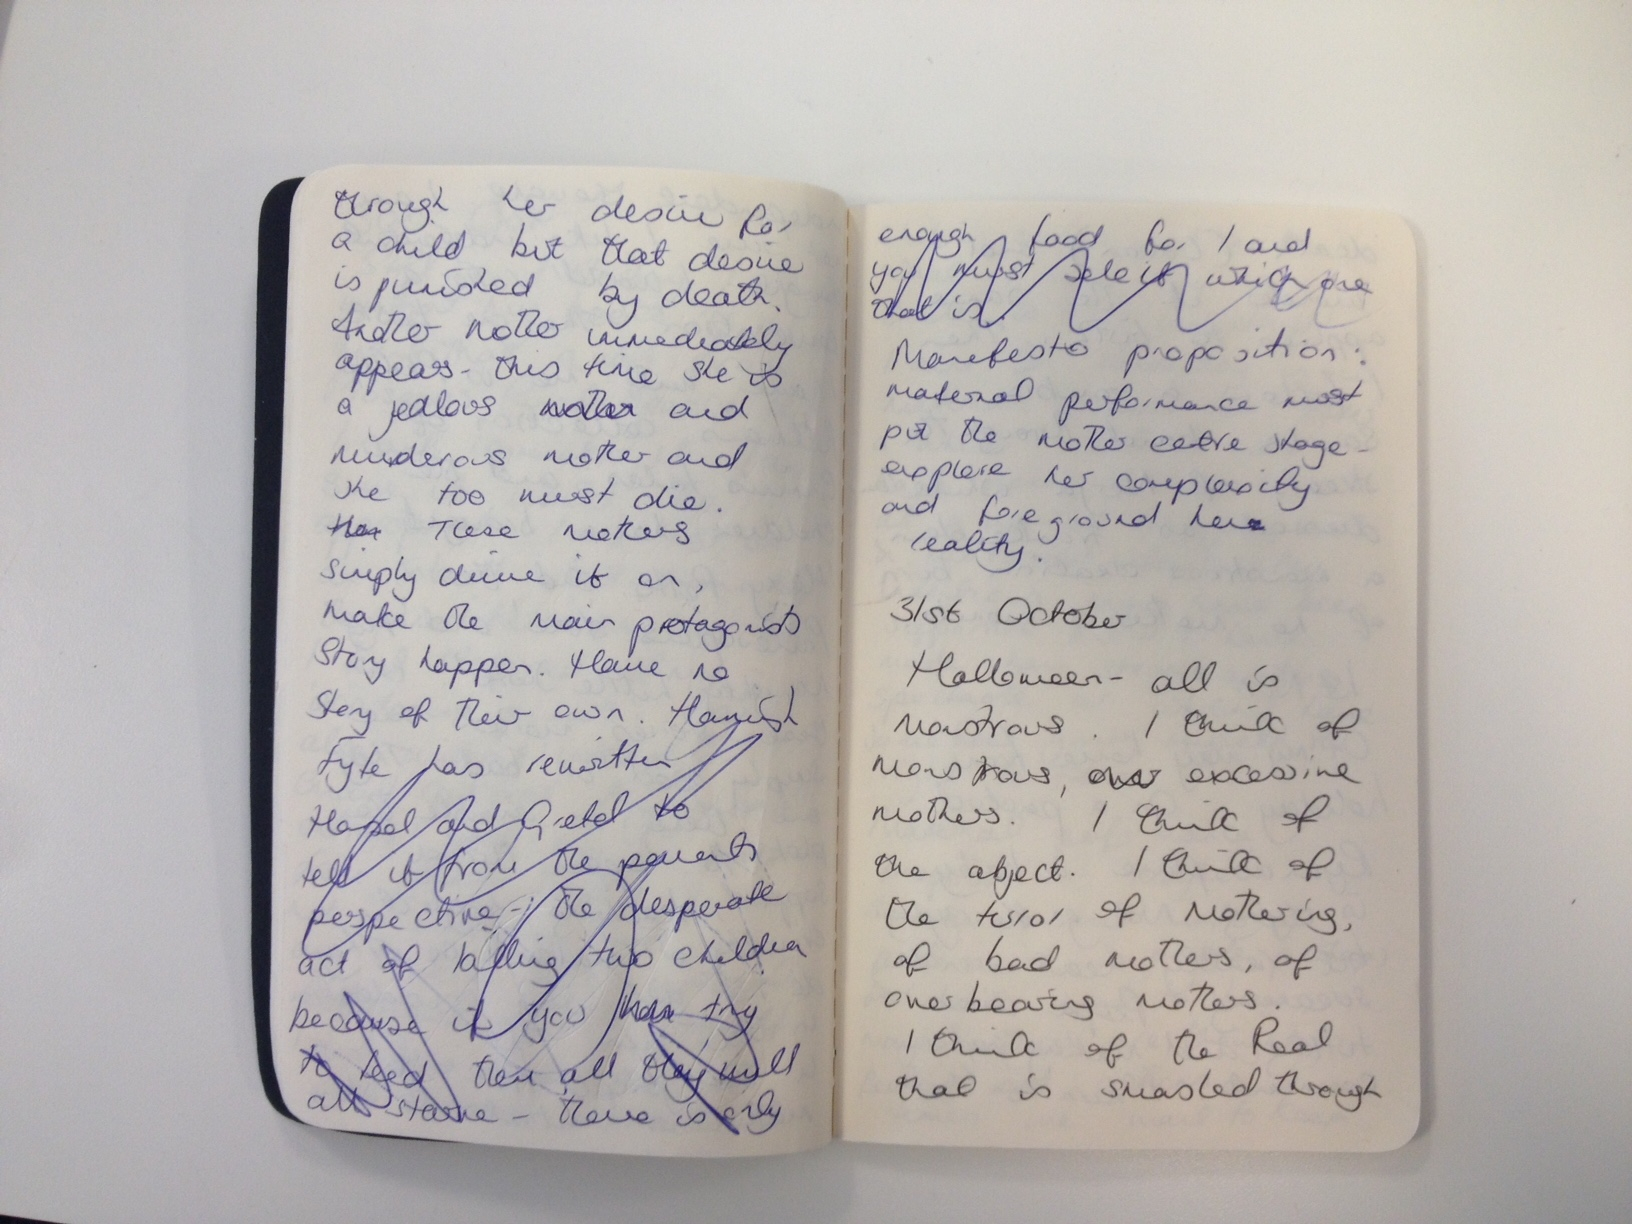 through her desire for
a child but that desire
is punished by death.
Another mother immediately
appears - this time she is
a jealous mother and
murderous mother and
she too must die.
These mothers
simply drive it on,
make the main protagonists
story happen. Have no
story of their own. Hamish
Fyfe has rewritten
Hansel and Gretel to
tell it from the parents
perspective - the desperate
act of killing two children
because if you try
to feed them all they will
all starve - there is only
enough food for 1 and
you must select which one
that is.
Manifesto proposition:
maternal performance must
put the mother centre stage -
explore her complexity
and foreground her
reality.
31st October
Halloween - all is
monstrous. I think of
monstrous, over excessive
mothers. I think of
the abject. I think of
the terror of mothering,
of bad mothers, of
overbearing mothers.
I think of the Real
that is smashed through